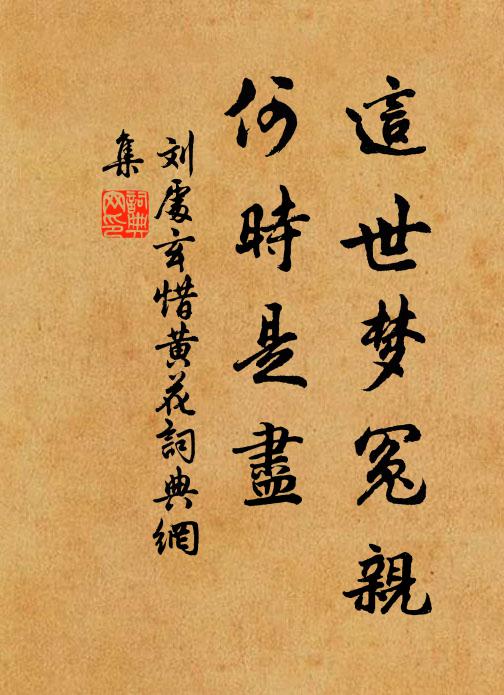 這世梦冤親
何時是盡
刘處玄惜黄花詞典網
集
詞典网印